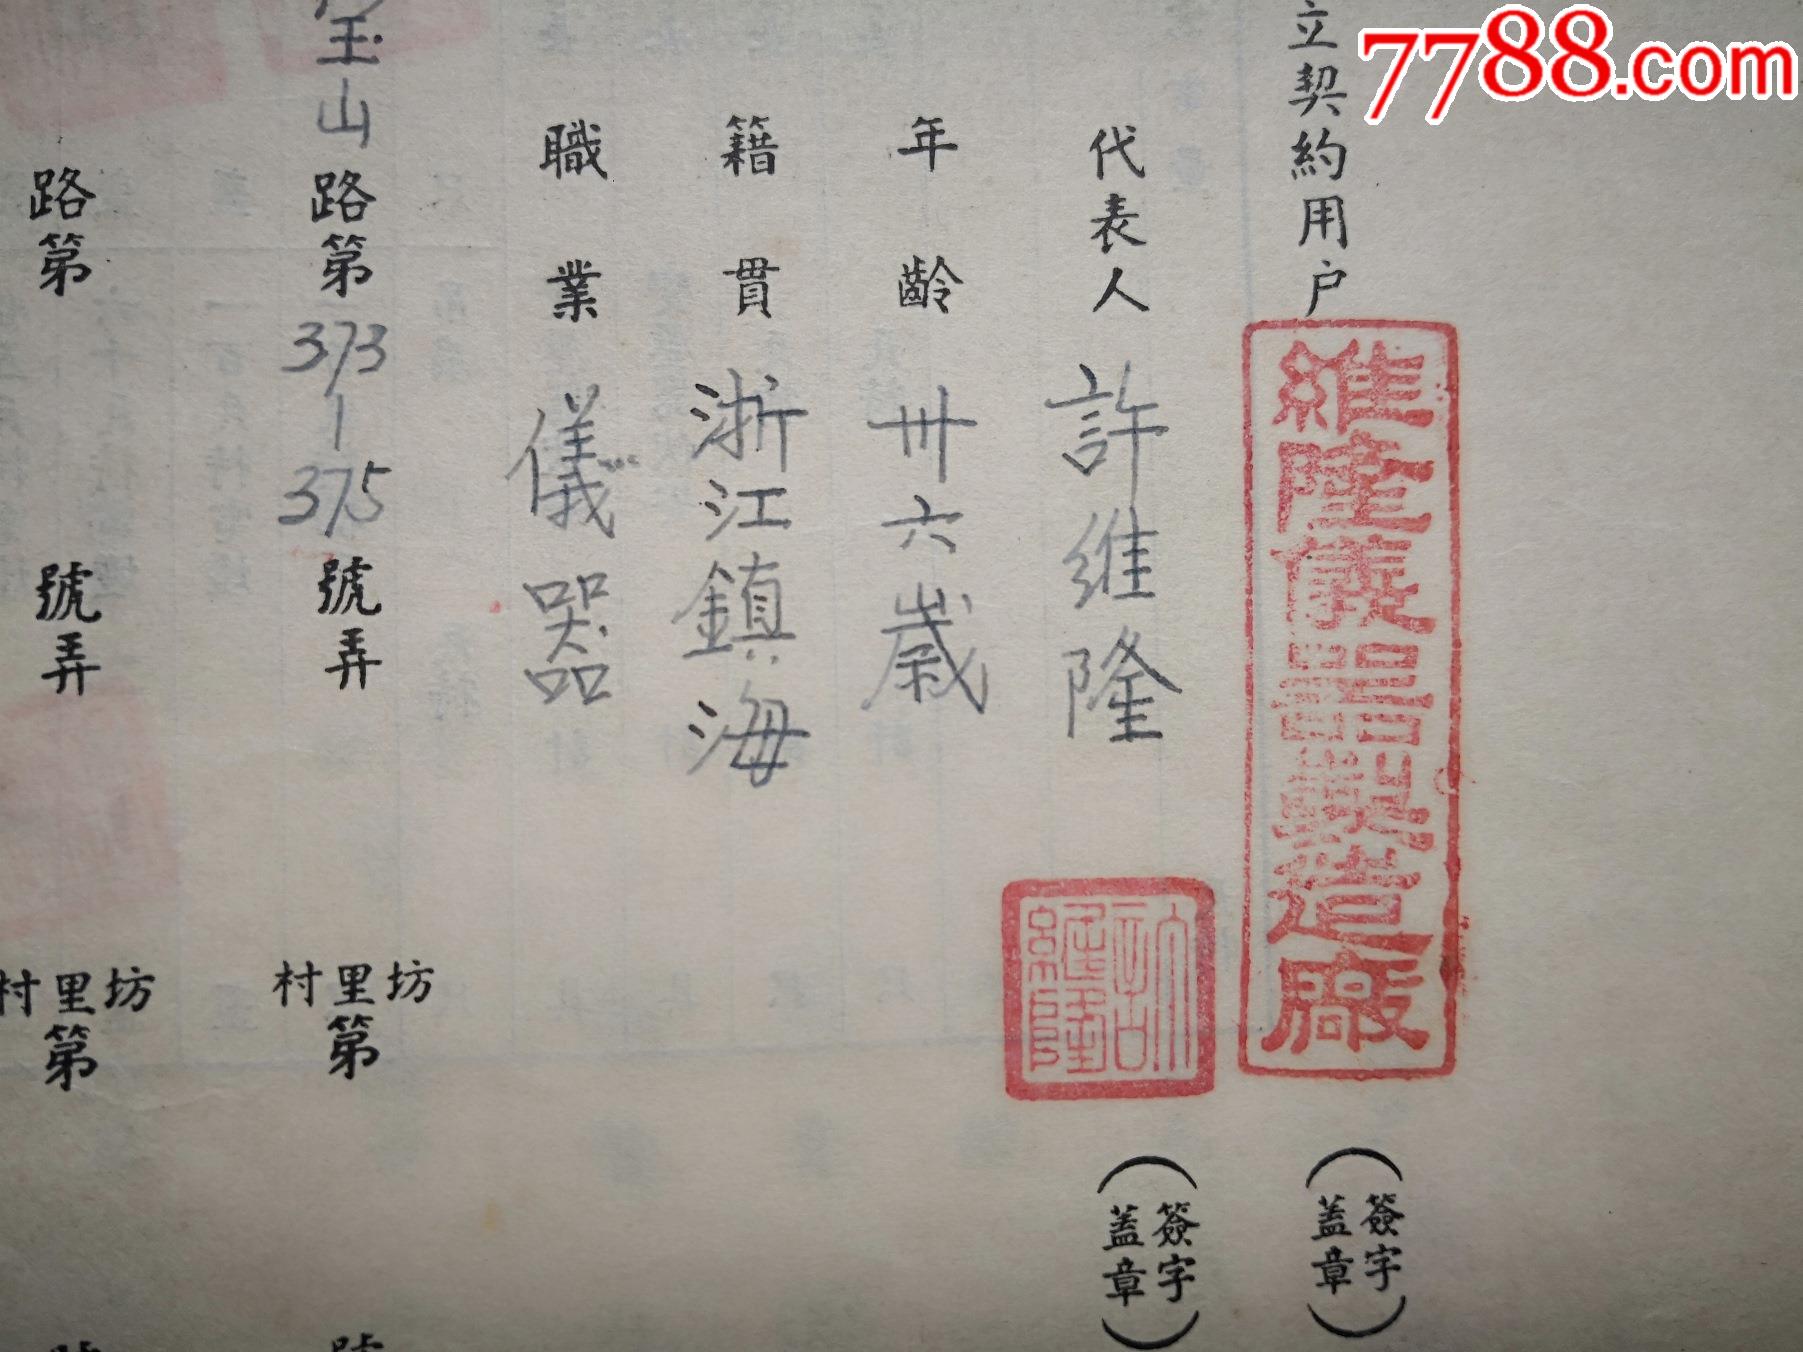 7788.com
立契約用户
維隆儀器製造廠
(簽字蓋章)
代表人 許維隆
許維隆
(簽字蓋章)
年齡 卅六歲
籍貫 浙江鎮海
職業 儀器
玉山路第373-375號弄 坊里村第
路第 號弄 坊里村第